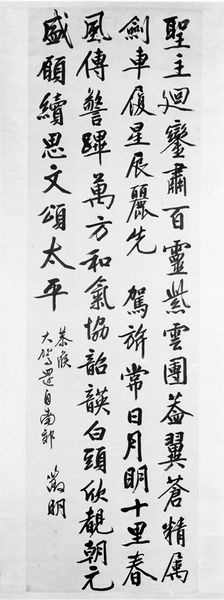 聖主廻鑾肅百靈紫雲團葢翼蒼精属
劍車履星辰麗先 駕旂常日月明十里春
風傳警蹕萬方和氣協韶韺白頭欣覩朝元
盛願續思文頌太平
恭候
大駕還自南郊 徵明